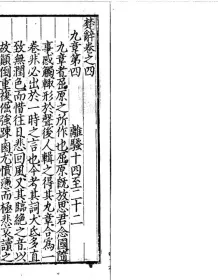 楚辭卷之四
九章第四
離騷十四至二十二
九章者屈原之所作也屈原既放思君念國隨
事感觸輒形於聲後人輯之得其九章合爲一
卷非必出於一時之言也今考其詞大氐多直
致無潤色而惜往日悲回風又其臨絶之音以
故顛倒重複倔強疎鹵尤憤懣而極悲哀讀之